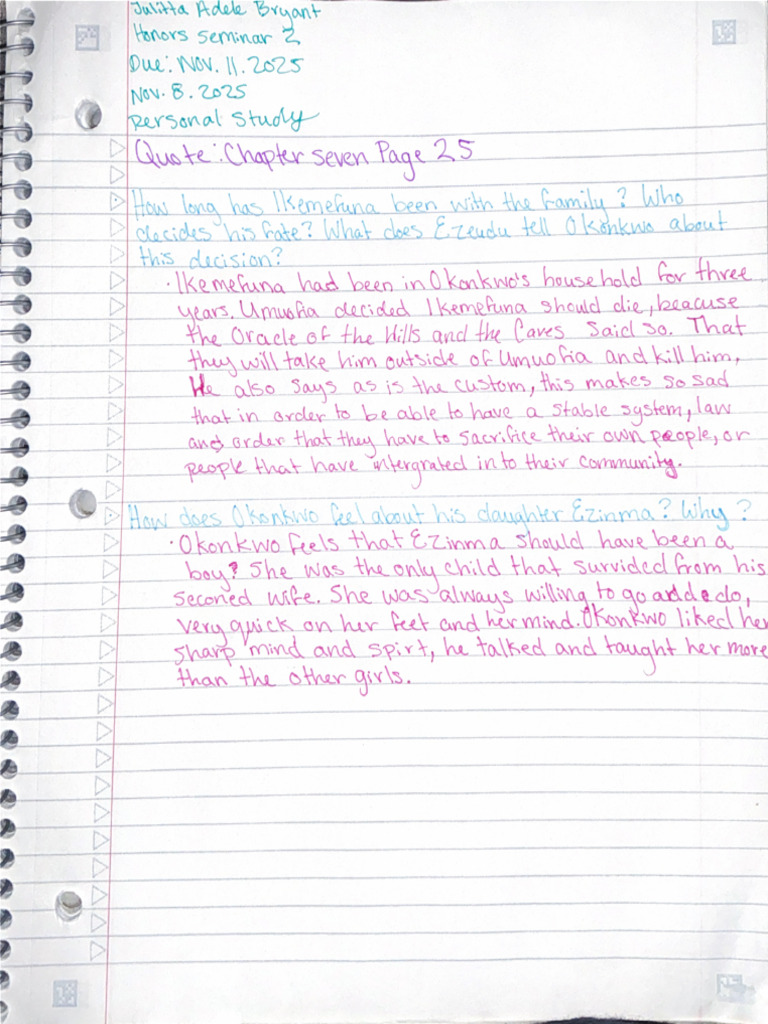 Julitta Adele Bryant
Honors Seminar 2
Due: Nov. 11. 2025
Nov. 8. 2025
Personal Study
Quote: Chapter seven Page 25
How long has Ikemefuna been with the family? Who
decides his fate? What does Ezeudu tell Okonkwo about
this decision?
· Ikemefuna had been in Okonkwo's household for three
years. Umuofia decided Ikemefuna should die, beacuse
the Oracle of the Hills and the Caves said so. That
they will take him outside of Umuofia and kill him,
He also says as is the custom, this makes so sad
that in order to be able to have a stable system, law
and order that they have to sacrifice their own people, or
people that have intergrated in to their community.
How does Okonkwo feel about his daughter Ezinma? Why?
· Okonkwo feels that Ezinma should have been a
boy? She was the only child that survided from his
seconed wife. She was always willing to go and do,
very quick on her feet and her mind. Okonkwo liked her
sharp mind and spirt, he talked and taught her more
than the other girls.